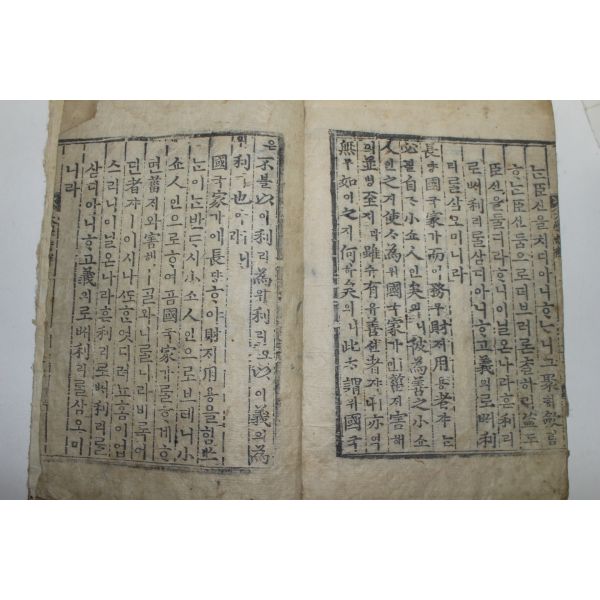 는臣신을치디아니ᄒᆞᄂᆞ니그聚취斂렴
ᄒᆞᄂᆞᆫ臣신둠으로더브러론ᄎᆞᆯ하리盜도
臣신을둘디라ᄒᆞ니이닐온나라흔利리
로ᄡᅥ利리ᄅᆞᆯ삼디아니ᄒᆞ고義의로ᄡᅥ利
리ᄅᆞᆯ삼오미니라
長댱國국家가而이務무財ᄌᆡ用용者쟈ᄂᆞᆫ
必필自ᄌᆞ小쇼人인矣의니彼為善之小쇼
人인之지使ᄉᆞ為위國국家가ㅣ면菑ᄌᆡ害해
의並병至지라雖슈有유善션者쟈ㅣ나亦역
無무如여之지何하矣의니此ᄎᆞ謂위國국
은不블以이利리為위利리오以이義의為
위利리也야ㅣ니라
國국家가에長댱ᄒᆞ야財ᄌᆡ用용을힘ᄡᅳ
눈이ᄂᆞᆫ반ᄃᆞ시小쇼人인으로브테니小
쇼人인으로ᄒᆞ여곰國국家가ᄅᆞᆯᄒᆞ게ᄒᆞ
면菑ᄌᆡ와害해ㅣᄀᆞᆯ와니ᄅᆞᆯ나비록어
딘者쟈ㅣ이시나ᄯᅩᄒᆞᆫ엇디려뇨홈이업
스리니이닐온나라흔利리로ᄡᅥ利리ᄅᆞᆯ
삼디아니ᄒᆞ고義의로ᄡᅥ利리ᄅᆞᆯ삼오미
니라